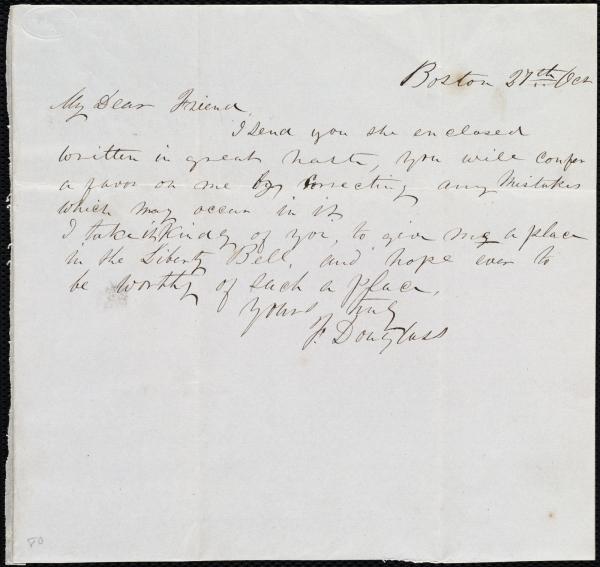 Boston 27th Oct
My Dear Friend
I send you the enclosed
written in great haste, you will confer
a favor on me by correcting any Mistakes
which may occur in it
I take it kindly of you, to give me a place
in the Liberty Bell and hope ever to
be worthy of such a place.
Yours truly
F. Douglass